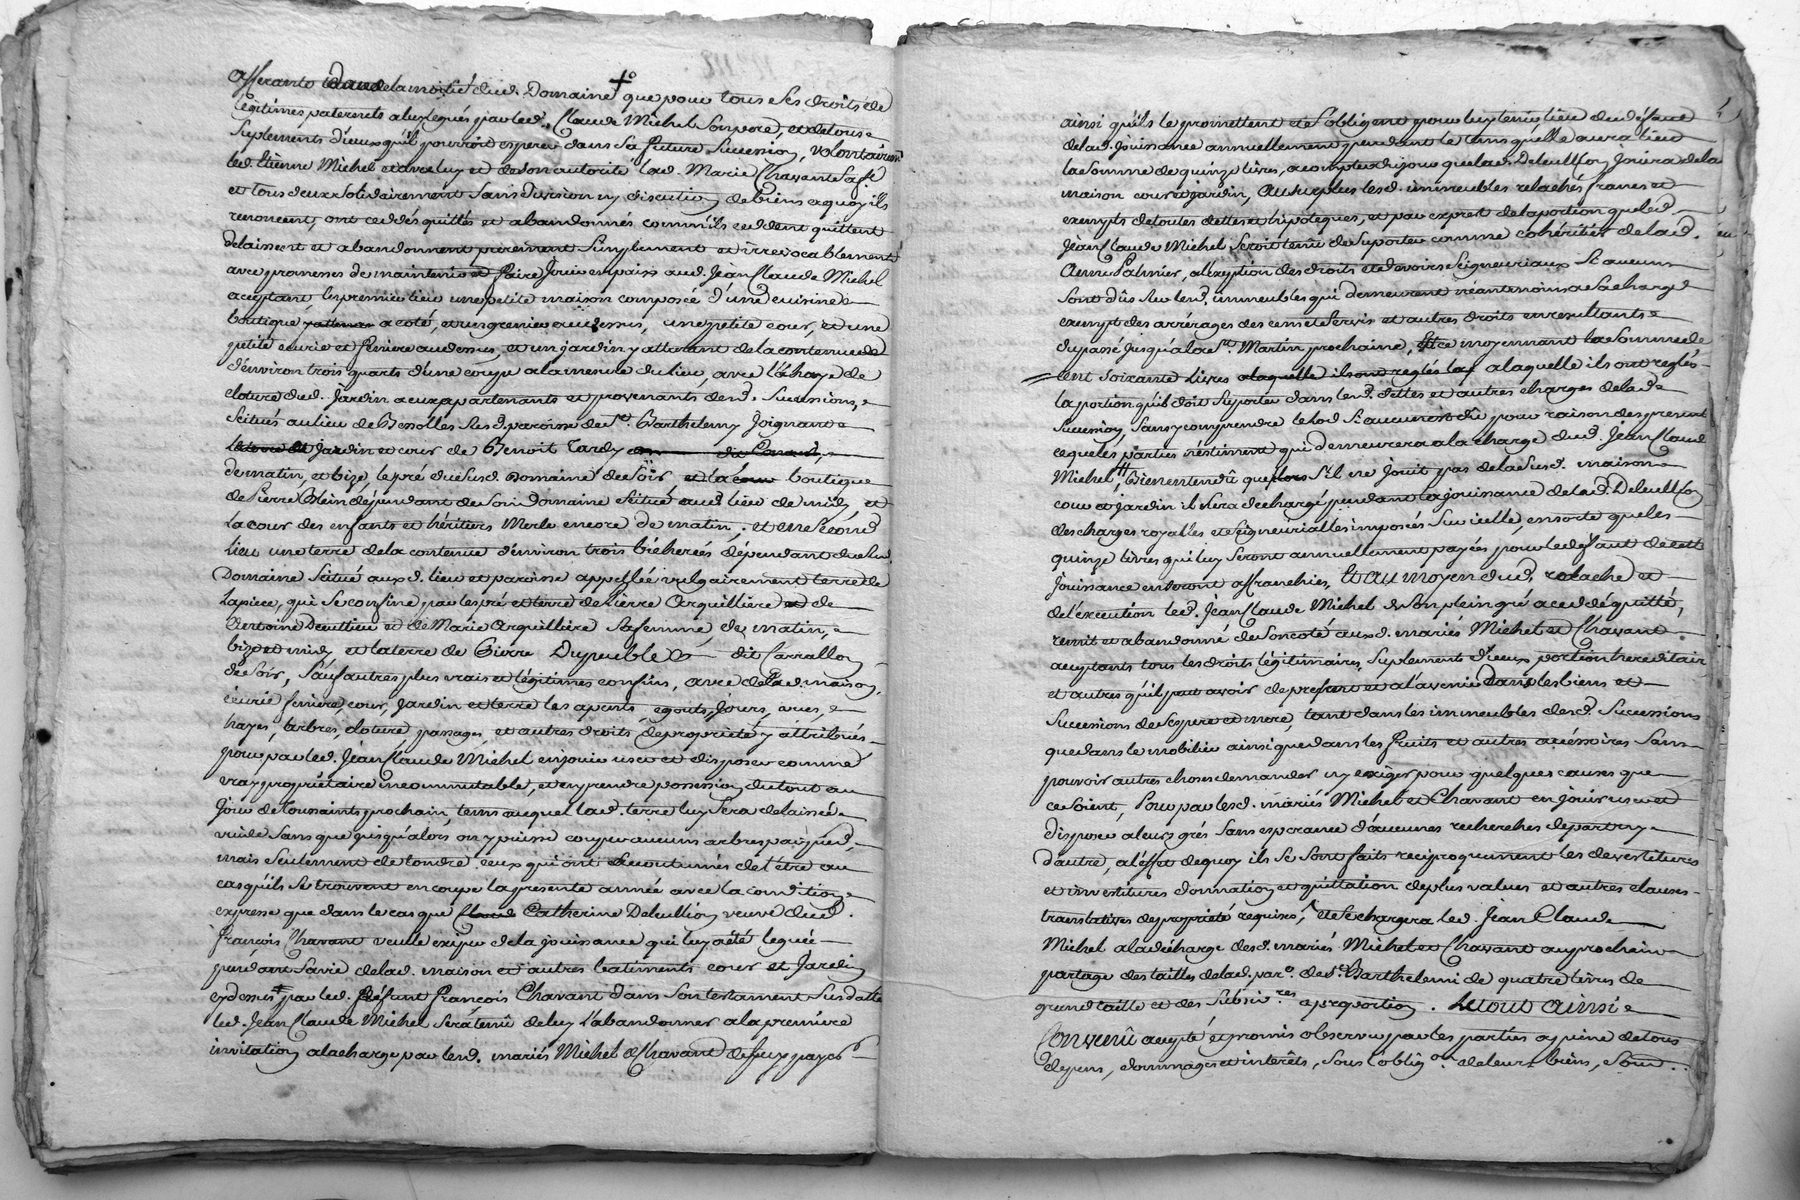 afferante de la moitié dud. Domaine que pour tous ses droits de
légitimes paternels a luy legués par led. Claude Michel Son pere, et de tous
Suplements d'iceux qu'il pourroit esperer dans Sa future Succession, volontairem.
led. Etienne Michel et avec luy et de Son autorité lad. Marie Chavant Sa f.e
et tous deux Solidairement Sans division ny discution de biens a quoy ils
renoncent, ont ceddés quittés et abandonnés comm'ils ceddent quittent
delaissent et abandonnent purement Simplement et irrevocablement
avec promesses de maintenir et faire Jouir en paix aud. Jean Claude Michel
aceptant les premier lieu une petite maison composée d'une cuisine
boutique a coté, et un grenier au dessus, une petite cour, et une
petite ecurie et feniere au dessus, et un jardin y attenant de la contenue de
d'environ trois quarts d'une coupe a la mesure du lieu, avec l'ahaye de
cloture dud. Jardin a eux apartenants et provenants desd. Successions,
Scitués au lieu de Bessolles Susd. paroisse de St. Barthelemy Joignant
Jardin et cour de Benoit Tardy
de matin, et bize, le pré du Susd. Domaine de Soir boutique
de Pierre Blein dépendant de Son domaine Scitué aud. lieu de midy, et
la cour des enfants et héritiers Merle encore de matin, et en Second
lieu une terre de la contenue d'environ trois bicherées dépendant du Susd.
Domaine Scitué auxd. lieu et paroisse appellée vulgairement terre de
Lapiece, qui Se confine par les pré et terre de Pierre Arquilliere de
Antoine Decultieu et de Marie Arquilliere Sa femme de matin,
bize et midy et la terre de Pierre Dupeuble dit Carrallon
de Soir, Sauf autres plus vrais et légitimes confins, avec de lad. maison,
écurie feniere, cour, Jardin et terre les aparts, egouts, Jours, vues,
hayes, arbres, cloture passages, et autres droits de propriété y attribués
pour par led. Jean Claude Michel en jouir user et disposer comme
vray propriétaire incommutable, et en prendre possession du tout au
Jour de Toussaints prochain, tems auquel lad. terre luy Sera delaissée
vuide Sans que jusqu'alors on y puisse couper aucuns arbres par pied,
mais Seulement de tondre ceux qui ont accoutumés de l'être au
cas qu'ils Se trouvent en coupe la presente année avec la condition
expresse que dans le cas que Catherine Deleullion veuve dud.
françois Chavant veuille exiger de la jouissance qui luy a été leguée
pendant Sa vie de lad. maison et autres batiments cour et Jardin
cy dessus par led. défunt françois Chavant dans Son testament Susdatté
led. Jean Claude Michel Sera tenû de luy l'abandonner a la premiere
invitation a la charge par lesd. mariés Michel et Chavant de luy payer
ainsi qu'ils le promettent et S'obligent pour luy tenir lieu du défaut
de lad. Jouissance annuellement pendant le tems qu'elle aura lieu
la Somme de quinze livres, a compter du jour que lad. Deleullion Jouira de la
maison cour et jardin, Au Surplus lesd. immeubles relachés francs et
exempts de toutes dettes et hipoteques, et par exprest de la portion que led.
Jean Claude Michel Seroit tenû de Suporter comme cohéritier de lad.
Anne Palmier, a l'exception des droits et devoirs Seigneuriaux Si aucuns
Sont dûs Sur lesd. immeubles qui demeurent néantmoins a Sa charge
exempt des arrérages des cens et Servis et autres droits en resultants
du passé jusqu'a la St. Martin prochaine, et ce moyennant la Somme de
Cent Soixante Livres a laquelle ils ont reglés
la portion qu'il doit Suporter dans lesd. dettes et autres charges de lad.
Succession, Sans y comprendre le lod Si aucun est dû pour raison des presentes
cequel es parties n'estiment qui demeurera a la charge dud. Jean Claude
Michel, Bien entendû que S'il ne Jouit pas de la Susd. maison
cour et jardin il Sera déchargé pendant la jouissance de lad. Deleullion
des charges royalles et Seigneurialles imposés Sur icelle, en sorte que les
quinze livres qui luy Seront annuellement payées pour le défaut de cette
Jouissance en Seront affranchies, Et au moyen dud. relaché et
de l'execution led. Jean Claude Michel de Son plein gré a ceddé quitté,
remit et abandonné de Son coté auxd. mariés Michel et Chavant
aceptants tous les droits légitimaires, Suplements d'iceux portion hereditaire
et autres qu'il peut avoir de present et a l'avenir Dans les biens et
Successions de Ses pere et mere, tant dans les immeubles desd. Successions
que dans le mobilier ainsi que dans les fruits et autres accéssoires Sans
pouvoir autres choses demander ny exiger pour quelques causes que
ce Soient, Pour par lesd. mariés Michel et Chavant en jouir user et
disposer a leurs grés Sans esperance d'aucunes recherches de part ny
d'autre, a l'éffet de quoy ils Se Sont faits reciproquement les devestitures
et investitures donnation et quittation de plus values et autres clauses
translatives de propriété requises, et Se chargera led. Jean Claude
Michel a la décharge desd. mariés Michel et Chavant au prochain
partage des tailles de lad. par.e de St. Barthelemi de quatre livres de
grand taille et des Subsiv.res a proportion. Le tout Ainsi
Convenû acepté et promis observer par les parties a peine de tous
depens, dommages et intérêts, Sous l'oblig.on de leurs biens, Soum.